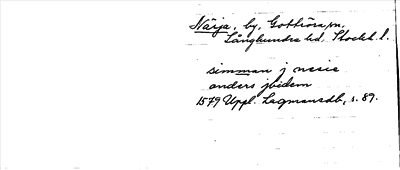 Närja, by, Gottröra sn,
Långhundra hd, Stockh. l.
simman j nesie
anders jbidem
1579 Uppl. Lagmansdb, s. 89.